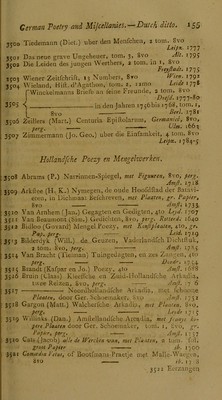 German Poetry and Miscellanies.—Dutch ditto. 155
3500 Tiedemann (Diet.) über den Menschen, 2 tom. 8vo
Leipz. 1777
3501 Das neue grave Ungeheuer, tom. 7, 8vo Alt. 1795
3502 Die Leiden des jungen Werthers, 2 tom. in 1, 8vo
Freystadt. 1775
3503 Wiener Zeitschrift, 13 Numbers, 8vo Wien. 1792
3504 Wieland, Hist. d'Agathon, tom. 2, 12mo Leide 1778
Winckelmanns Briefe an seine Freunde, 2 tom. 8vo
Dresd. 1777-80
3505 in den Jahren 1756 bis 1768, tom. 1,
8vo Berl. 1781
3506 Zeillers (Mart.) Centuria Epistolarum, Germanicè, 8vo,
perg. Ulm. 1663
3507 Zimmermann (Jo. Geo.) über die Einsamkeit, 4 tom. 8vo
Leipz. 1784-5
Hollandsche Poezy en Mengelwerken.
3508 Abrams (P.) Narrinnen-Spiegel, met Figuuren, 8vo, perg.
Amst. 1718
3509 Arkösse (H. K.) Nymegen, de oude Hoofdstad der Batavieren,
in Dichtmaat Beschreven, met Plaaten, gr. Papier,
8vo Amst. 1733
3510 Van Arnhem (Jan.) Gezagten en Gedigten, 4to Leyd 1707
3511 Van Beaumont (Sim.) Gedichten, 8vo, perg. Rotterd. 1640
3512 Bulloo (Govard) Mengel Poezy, met Kunstplaaten, 4to, gr.
Pap. perg. Leid. 1719
3513 Bilderdyk (W.) de Geuzen, Vaderlandsch Dichtstuk,
2 tom. 8vo, perg. Amst. 1785
3514 Van Bracht (Tieman) Tuingedigten, en zes Zangen, 4to
perg. Dordr. 1754
3515 Brandt (Kaspar en Jo.) Poezy, 4to Amst. 1688
3516 Bruin (Claas) Kleefsche en Zuid-Hollandsche Arkadia,
twee Reizen, 8vo, perg. Amst.
3517 Noordhollandsche Arkadia, met Schoone
Plaaten, door Ger. Schoemaker, 8vo 1732
3518 Gargon (Matt.) Walchersche Arkadia, met Plaaten, 8vo,
perg. Leyd. 1715
3519 Willinke (Dan.) Amstellandsche Arcadia, met fraaije
Plaaten door Ger. Schoemaker, tom. 1, 8vo, gr.
Papier, perg. Amst.
3520 Cats (Jacob) alle de Werken van, met Plaaten, 2 tom. fol.
groot Papier Amst. 1700
3521 Comœdia Vetus, of Bootsmans Praetje met
8vo 1718
3522 Eutzangen